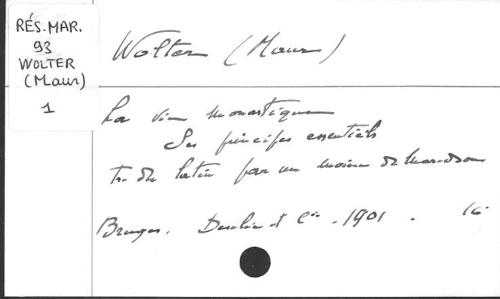 RÉS. MAR.
93
WOLTER
(Maur)
1
Wolter (Maur)
La vie monastique
Ses principes essentiels
tr. du latin par un moine de Maredsous
Bruges. Desclée et Cie. 1901. 16